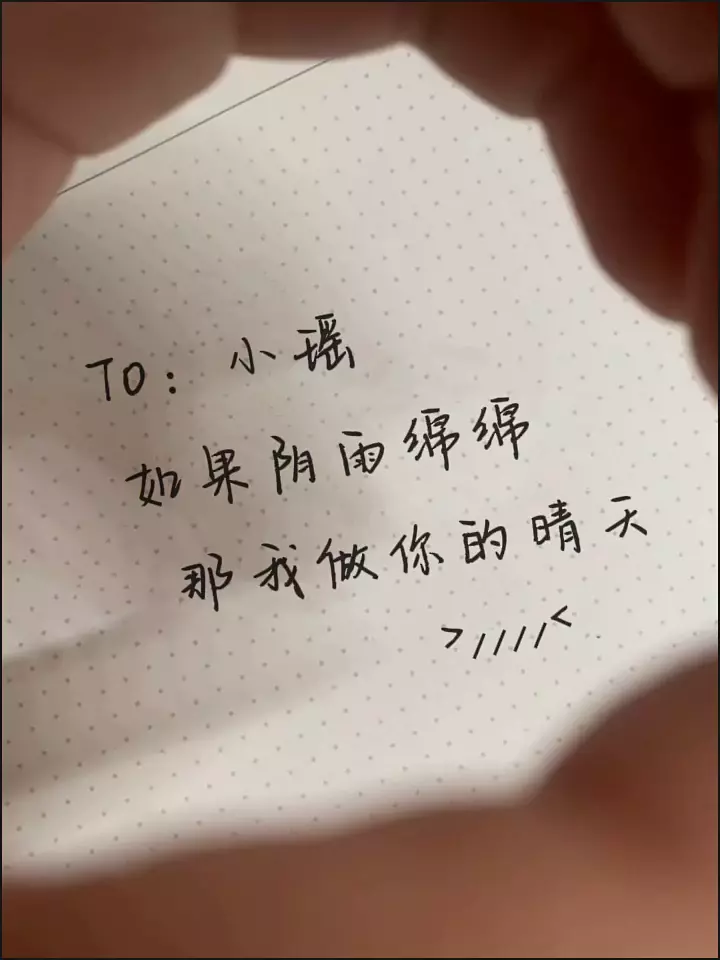 TO：小瑶
如果阴雨绵绵
那我做你的晴天
>////<